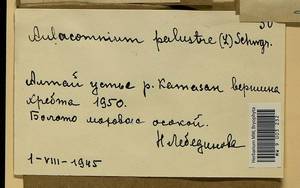 Aulacomnium palustre (L) Schwgr.
Алтай устье р. Катазан вершина
хребта 1950.
Болото моховое осокой.
Н Лебединова
1-VIII-1945